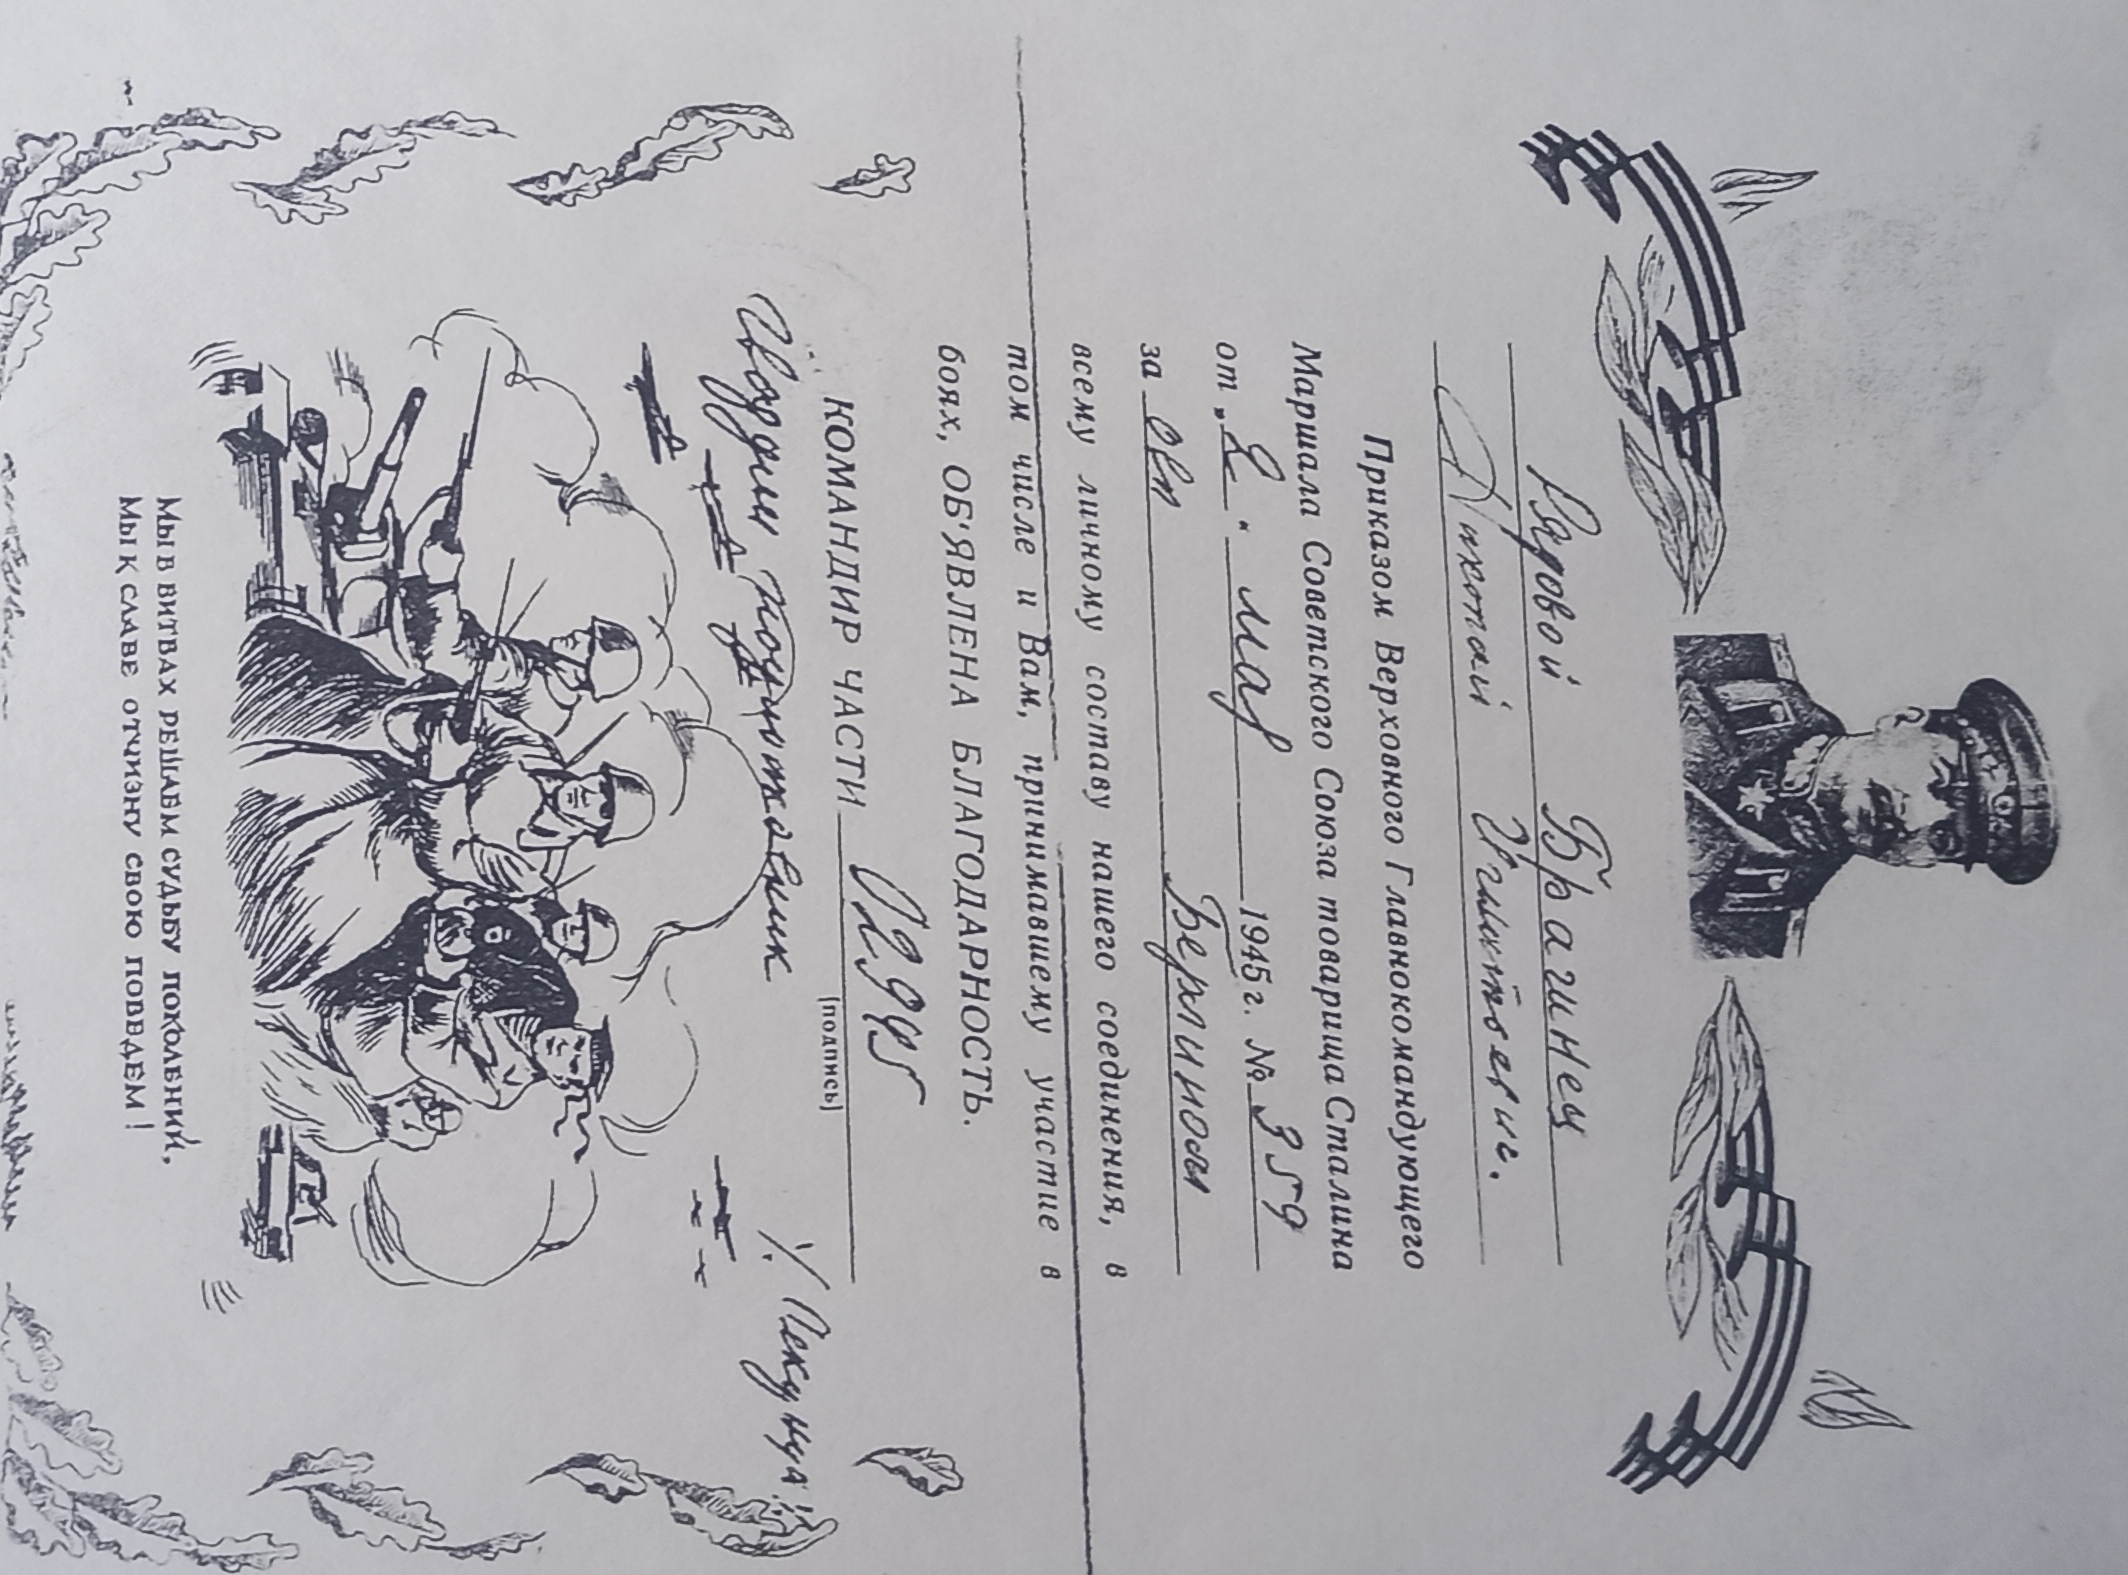 Рядовой Брагинец
Николай Игнатьевич.
Приказом Верховного Главнокомандующего
Маршала Советского Союза товарища Сталина
от „2“ мая 1945 г. № 359
за овл Берлином
всему личному составу нашего соединения, в
том числе и Вам, принимавшему участие в
боях, ОБ'ЯВЛЕНА БЛАГОДАРНОСТЬ.
КОМАНДИР ЧАСТИ 02945
(подпись)
Гвардии /Пекунца/
МЫ В БИТВАХ РЕШАЕМ СУДЬБУ ПОКОЛЕНИЙ,
МЫ К СЛАВЕ ОТЧИЗНУ СВОЮ ПОВЕДЕМ!